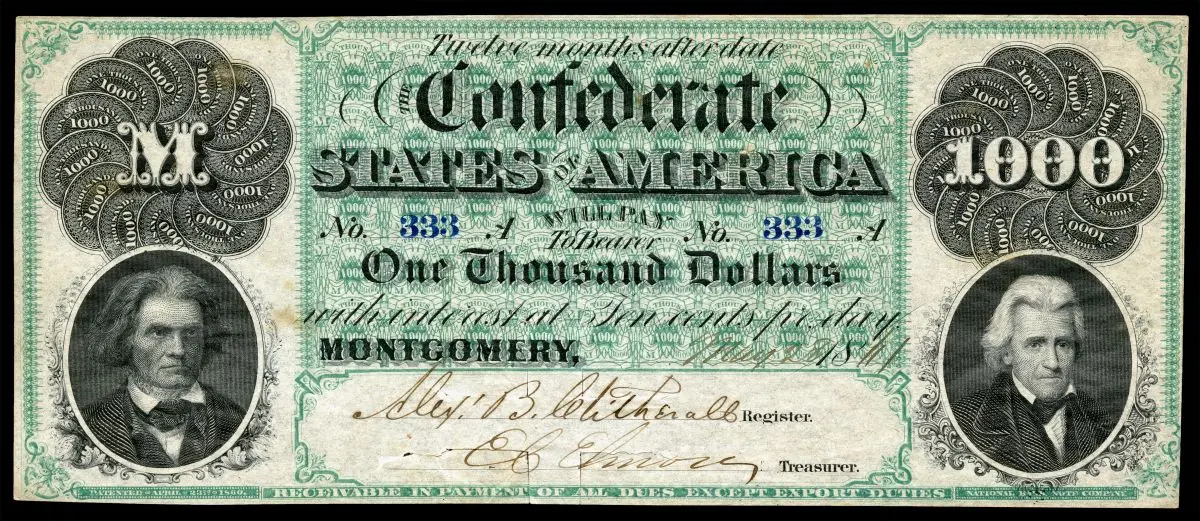 Twelve months after date
THE
Confederate
STATES OF AMERICA
M
1000
No. 333 A WILL PAY No. 333 A
To Bearer
One Thousand Dollars
with interest at Ten cents pr. day
MONTGOMERY, May 28, 1861
Alexr. B. Clitherall Register.
E C Elmore Treasurer.
PATENTED APRIL 23RD. 1860.
RECEIVABLE IN PAYMENT OF ALL DUES EXCEPT EXPORT DUTIES
NATIONAL BANK NOTE COMPANY